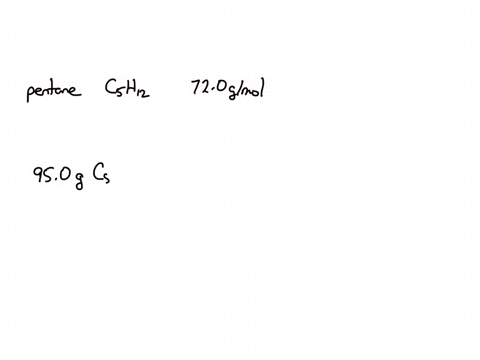 pentane C₅H₁₂ 72.0g/mol
95.0g C₅